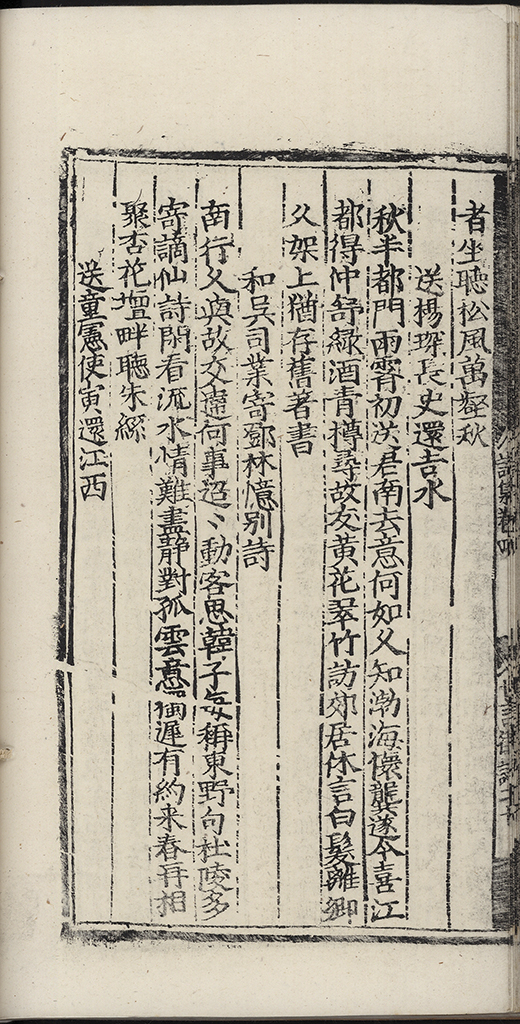 者坐聽松風萬壑秋
送楊琛長史還吉水
秋半都門雨霽初送君南去意何如久知渤海懷龔遂今喜江
都得仲舒緑酒青樽尋故友黃花翠竹訪郊居休言白髮離鄉
久架上猶存舊著書
和吳司業寄鄧林憶别詩
南行久與故交違何事迢〻動客思韓子妄稱東野句杜陵多
寄謫仙詩閑看流水情難盡静對孤雲意獨遲有約来春再相
聚杏花壇畔聽朱絲
送童憲使寅還江西